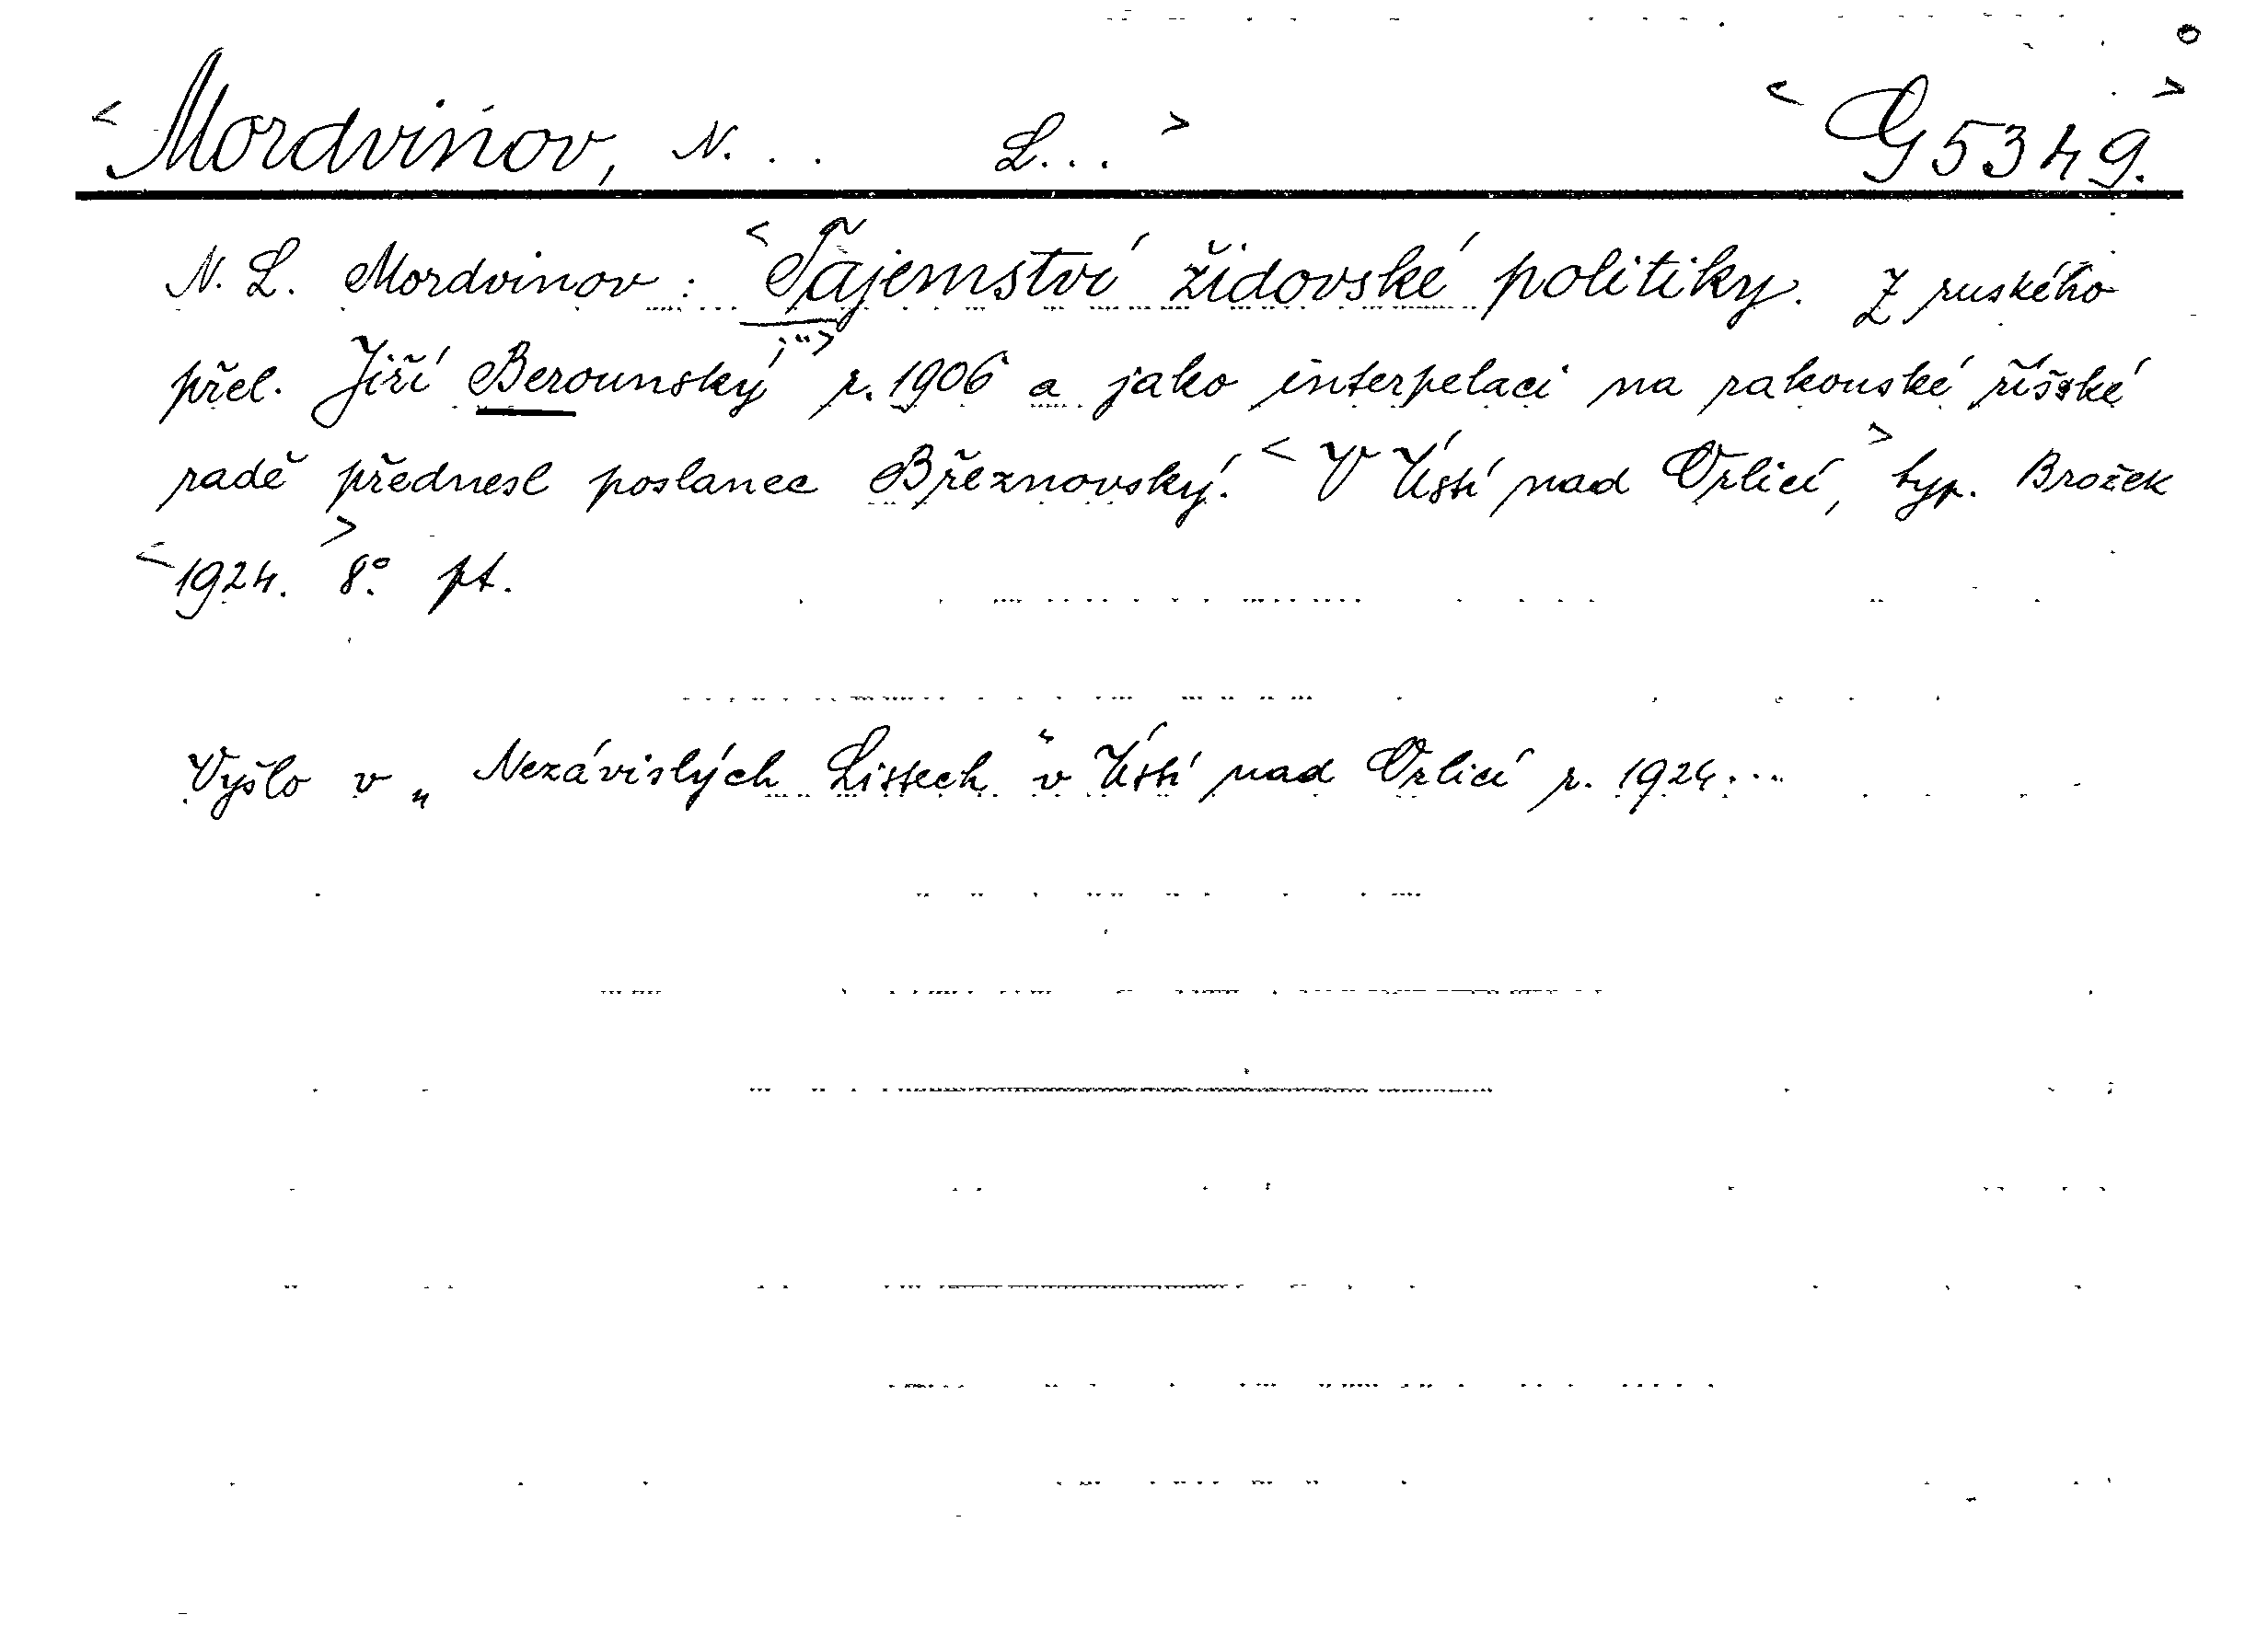 <Mordvinov, N... L...> <G 5349.>
N. L. Mordvinov: <Tajemství židovské politiky. Z ruského
přel. Jiří Berounský r. 1906 a jako interpelaci na rakouské říšské
radě přednesl poslanec Březnovský. <V Ústí nad Orlicí,> typ. Brožek
<1924.> 8° pt.
Vyšlo v „Nezávislých Listech“ v Ústí nad Orlicí r. 1924...